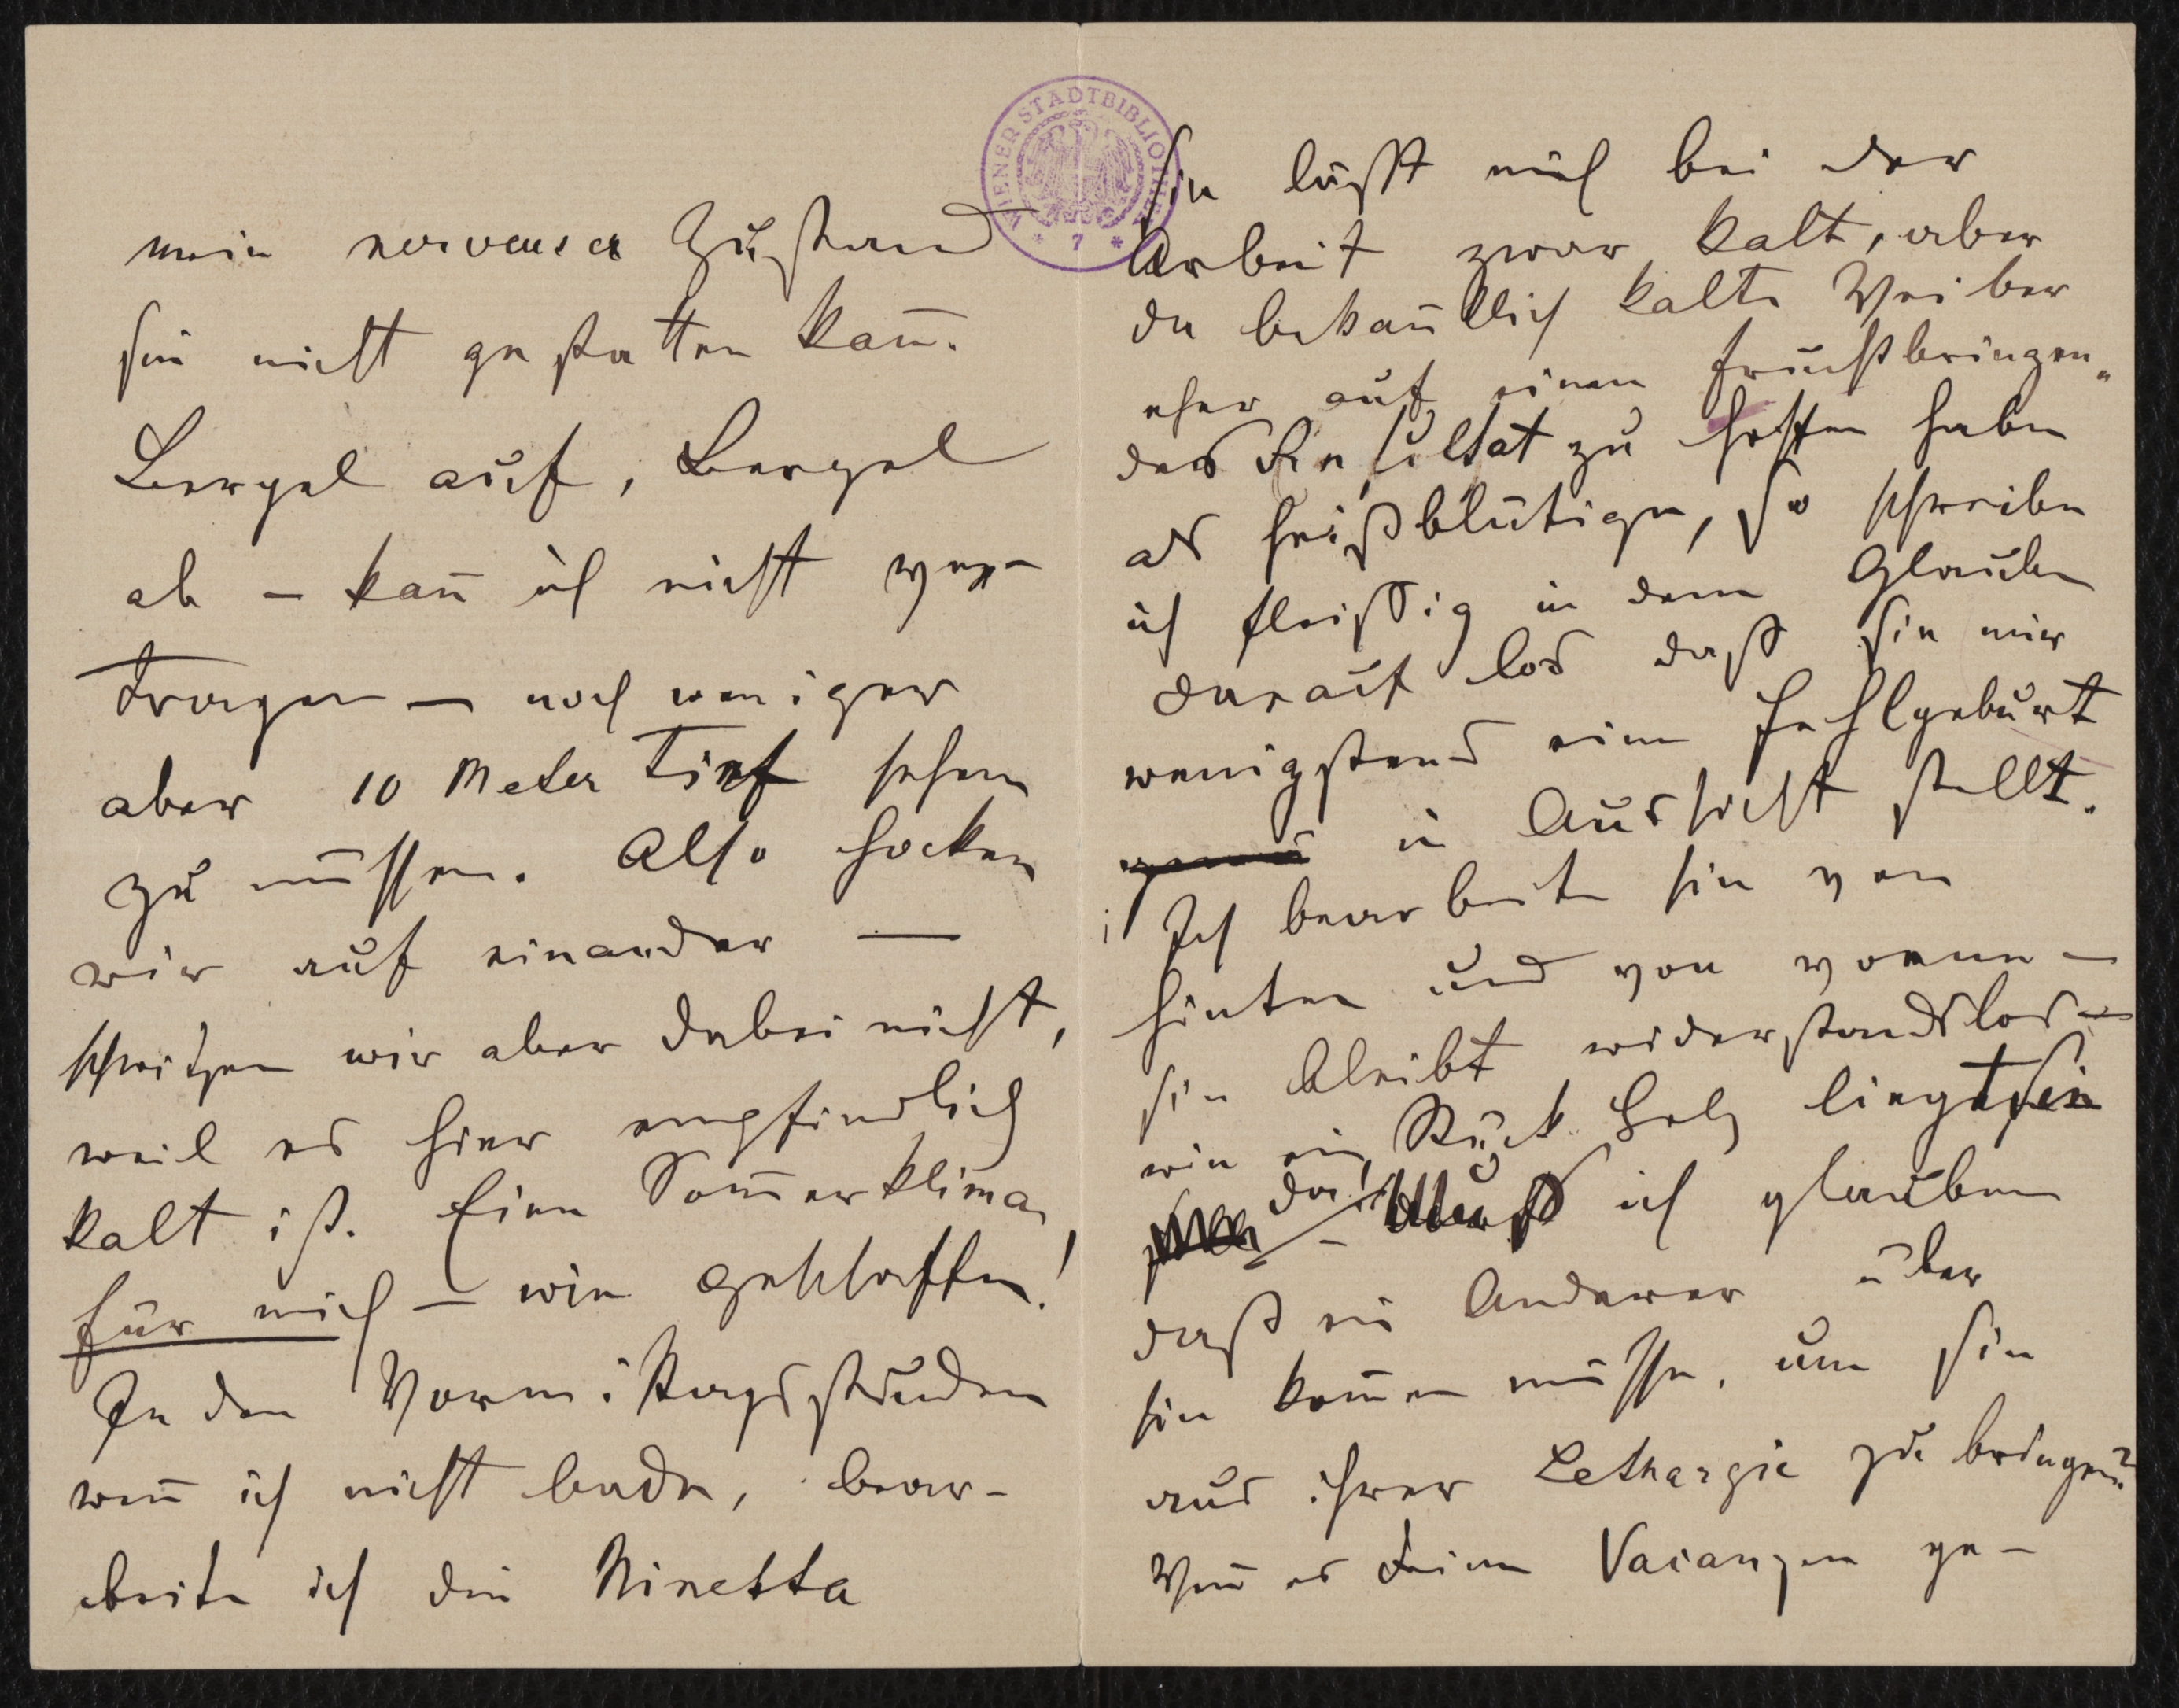 mein nervoeuser Zustand
sie nicht gestatten kan̄.
Bergel auf, Bergel
ab – kan̄ ich nicht ver-
tragen – noch weniger
aber 10 Meter tief sehen
zu müssen. Also hocken
wir auf einander –
schwitzen wir aber dabei nicht,
weil es hier empfindlich
kalt ist. Ein Som̄erklima
für mich – wie geschaffen!
In den Vormittagsstunden
wen̄ ich nicht bade, bear-
beite ich die Ninetta
WIENER STADTBIBLIOTHEK
* 7 *
Sie läßt mich bei der
Arbeit zwar kalt, aber
da bekan̄tlich kalte Weiber
eher auf einen fruchtbringen„
des Resultat zu hoffen haben
als heißblütige, so schreibe
ich fleißig in dem Glauben
darauf los daß sie mir
wenigstens eine Fehlgeburt
in Aussicht stellt.
Ich bearbeite sie von
hinten und von vorne –
sie bleibt widerstandslos –
wie ein Stück Holz liegt sie
da! – Muß ich glauben
daß ein Anderer über
sie kom̄en müsse, um sie
aus ihrer Lethargie zu bringen?
Wen̄ es Deine Vacanzen ge-